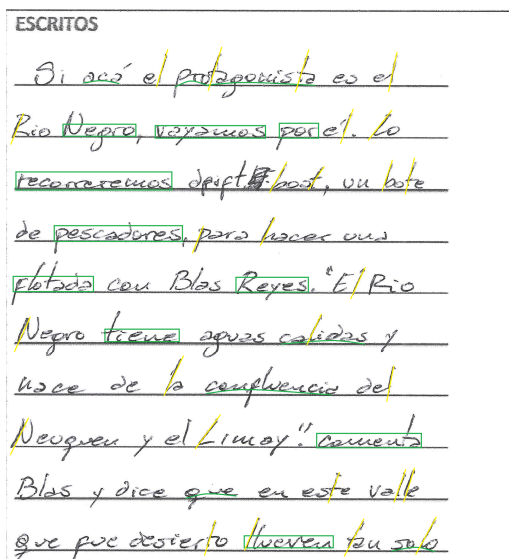 ESCRITOS
Si acá el protagonista es el
Rio Negro, vayamos por él. Lo
recorreremos drift boat, un bote
de pescadores, para hacer una
flotada con Blas Reyes. "El Rio
Negro tiene aguas calidas y
nace de la confluencia del
Neuquen y el Limay". comenta
Blas y dice que en este valle
que fue desierto llueven tan solo